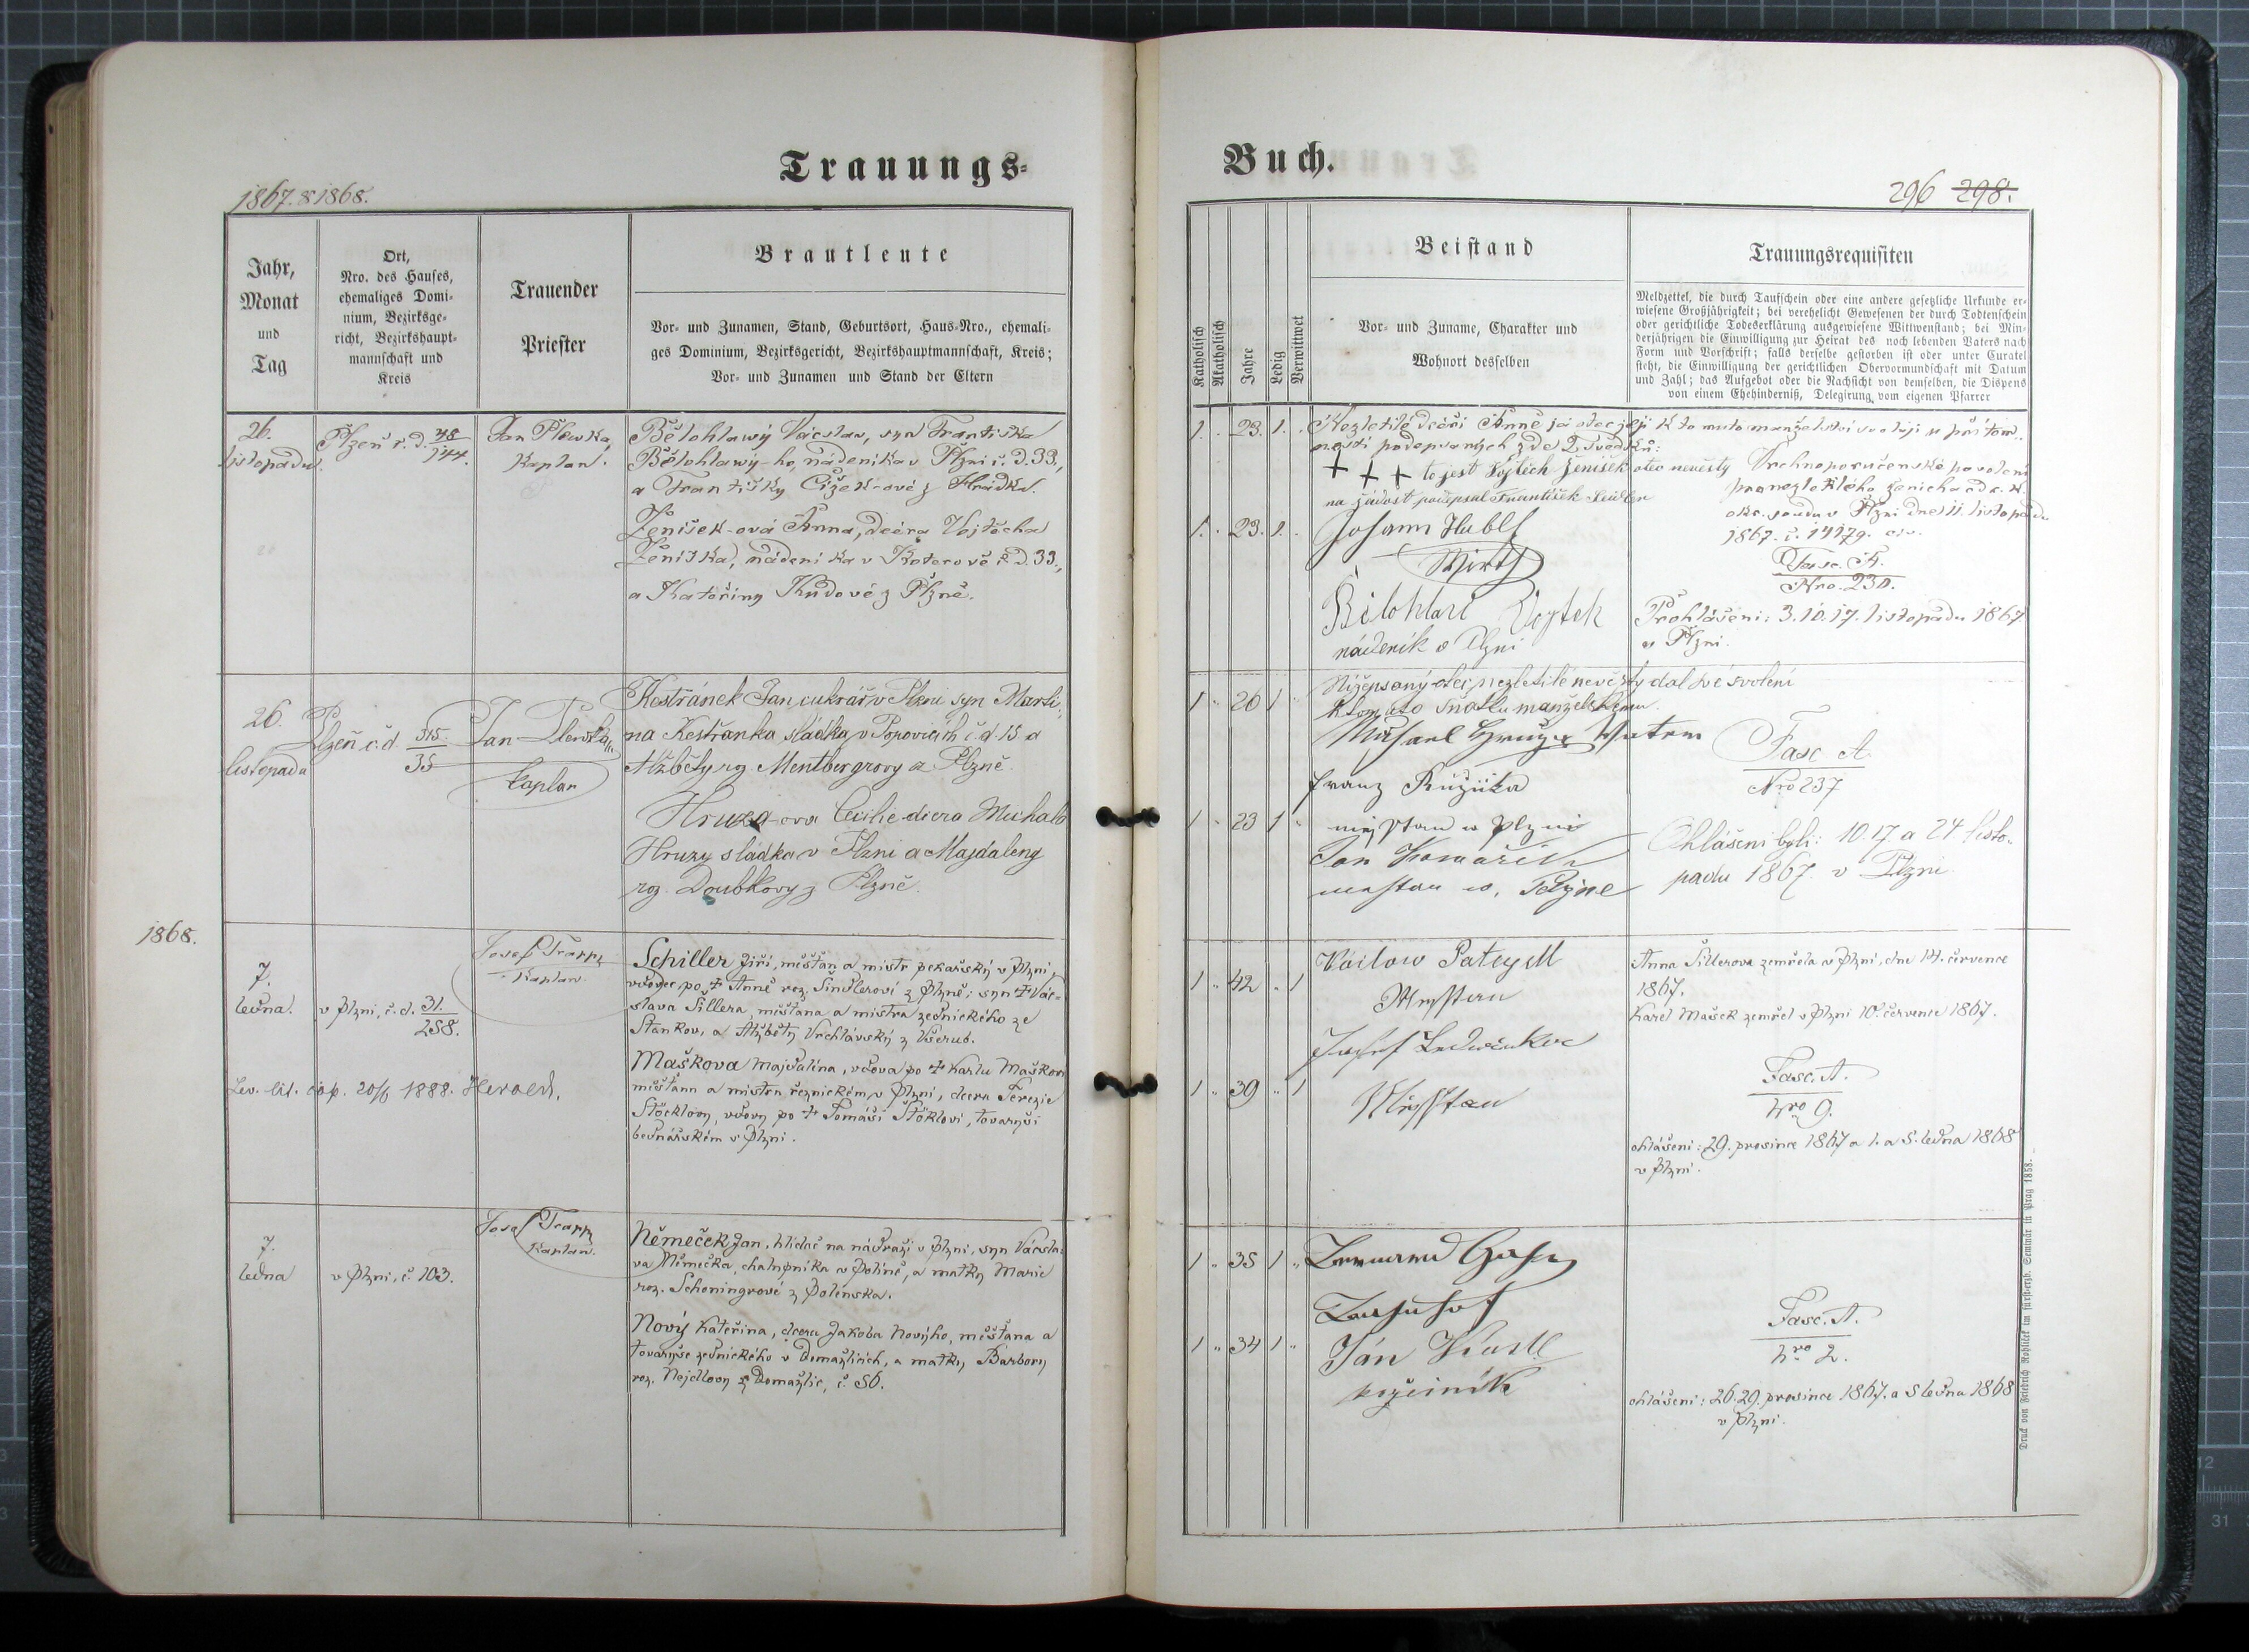 Trauungs-
1867. & 1868.
Jahr,
Monat
und
Tag
Ort,
Nro. des Hauses,
ehemaliges Domi-
nium, Bezirksge-
richt, Bezirkshaupt-
mannschaft und
Kreis
Trauender
Priester
Brautleute
Vor- und Zunamen, Stand, Geburtsort, Haus-Nro., ehemali-
ges Dominium, Bezirksgericht, Bezirkshauptmannschaft, Kreis;
Vor- und Zunamen und Stand der Eltern
26.
listopadu
Plzeň č. d. 48/144.
Jan Plewka,
Kaplan.
Bělohlawý Václav, syn Františka
Bělohlawý-ho, nádeníka v Plzni č. d. 33.,
a Františky Čížek-ové z Hrádku.
Ženíšek-ová Anna, dcera Vojtěcha
Ženíška, nádeníka v Koterově č. d. 33.,
a Kateřiny Kudové z Plzně.
26.
listopadu
Plzeň č. d. 315/35
Jan Plewka
kaplan
Kestřánek Jan cukrář v Plzni syn Marti-
na Kestřanka, sládka v Popovicích č. d. 15 a
Alžběty rz. Mentbergrovy z Plzně.
Hruza-ova Cecilie dcera Michala
Hruzy sládka v Plzni a Majdaleny
rz. Doubkovy z Plzně.
1868.
7.
ledna.
v Plzni, č. d. 31./258.
Josef Trapp
Kaplan
Schiller Jiří, měšťan a mistr pekařský v Plzni,
vdovec po † Anně roz. Šindlerovi z Plzně; syn † Vác-
slava Šillera, měšťana a mistra zednického ze
Stankov, a Alžběty Vrchlavský z Všerub.
Maškova Majdalina, vdova po † Karlu Maškovi
měštanu a mistru řeznickém v Plzni, dcera Terezie
Stöcklovy, vdovy po † Tomáši Štöklovi, tovaryši
bednářském v Plzni.
Lev. lit. cop. 20/6 1888. Herold.
7.
ledna
v Plzni, č. 103.
Josef Trapp
Kaplan.
Němeček Jan, hlídač na nádraží v Plzni, syn Václa-
va Němečka, chalupníka v Políně, a matky Marie
roz. Schoningrové z Polenska.
Nový Kateřina, dcera Jakoba Nového, měšťana a
tovaryše zednického v Domažlicích, a matky Barbory
roz. Nejdlovy z Domažlic, č. 56.
Buch.
296 298.
Katholisch
Akatholisch
Jahre
Ledig
Verwitwet
Beistand
Vor- und Zuname, Charakter und
Wohnort desselben
Trauungsrequisiten
Meldzettel, die durch Taufschein oder eine andere gesetzliche Urkunde er-
wiesene Großjährigkeit; bei verehelicht Gewesenen der durch Todtenschein
oder gerichtliche Todeserklärung ausgewiesene Wittwenstand; bei Min-
derjährigen die Einwilligung zur Heirat des noch lebenden Vaters nach
Form und Vorschrift; falls derselbe gestorben ist oder unter Curatel
steht, die Einwilligung der gerichtlichen Obervormundschaft mit Datum
und Zahl; das Aufgebot oder die Nachsicht von demselben, die Dispens
von einem Ehehinderniß, Delegirung vom eigenen Pfarrer
1. 23. 1.
Nezletilé dceři Anně já otec její k tomuto manželství svoluji u přítom-
nosti podepsaných zde 2 svědků:
+ + + to jest Vojtěch Ženíšek otec nevěsty
na žádost podepsal František
1. 23. 1.
Johann Hubl
Wirth
Bilohlavi Vojtek
nádenik v Plzni
Vrchnoporučenské povolení
pro nezletilého ženicha od c. k.
okr. soudu v Plzni dne 11. listopadu
1867. č. 14179. civ.
Fasc. A.
Nro. 230.
Prohlášeni: 3. 10. 17. listopadu 1867
v Plzni.
1 " 26 1 "
Nížepsaný otec nezletilé nevěsty dal své svolení
k tomuto sňatku manželskému.
Franz Růžička
1 " 23 1 "
měsstan w Plzni
Jan
Fasc A.
Nro 237
Ohlášeni byli: 10. 17 a 24 listo-
padu 1867. v Plzni
1 " 42 " 1
Václaw
Josef
1 " 39 " 1
Měsstan
Anna Šillerova zemřela v Plzni, dne 14. července
1867.
Karel Mašek zemřel v Plzni 10. července 1867.
Fasc. A.
Nro 9.
ohlášeni: 29. prosince 1867 a 1. a 5. ledna 1868
v Plzni.
1 " 35 1 "
1 " 34 1 "
Ján
Fasc. A.
Nro 2.
ohlášeni: 26. 29. prosince 1867. a 5 ledna 1868
v Plzni.
Druck von Friedrich Rohliček im fürsterzb. Seminär in Prag 1858.